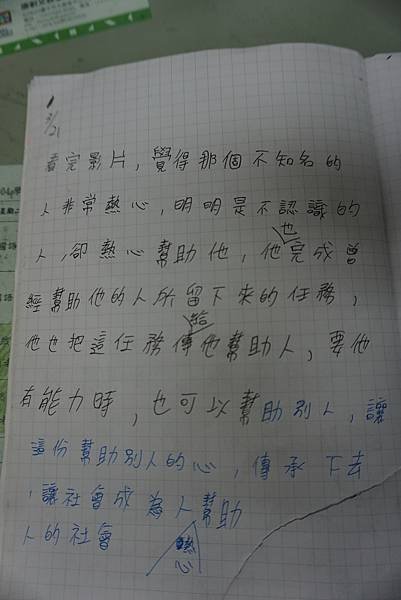 3/21
看完影片，覺得那個不知名的
人非常熱心，明明是不認識的
人，卻熱心幫助他，他也完成曾
經幫助他的人所留下來的任務，
他也把這任務傳給他幫助人，要他
有能力時，也可以幫助別人，讓
這份幫助別人的心，傳承下去
，讓社會成為人熱心幫助
人的社會